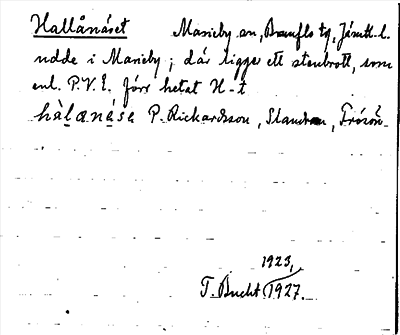 Hallånäset Marieby sn, Brunflo tg, Jämtl. l.
udde i Marieby; där ligger ett stenbrott, som
enl. P.V.E. förr hetat H-t
hàlanǻsa P. Rickardsson, Slandrom, Frösön.
1923,
T. Bucht 1927.